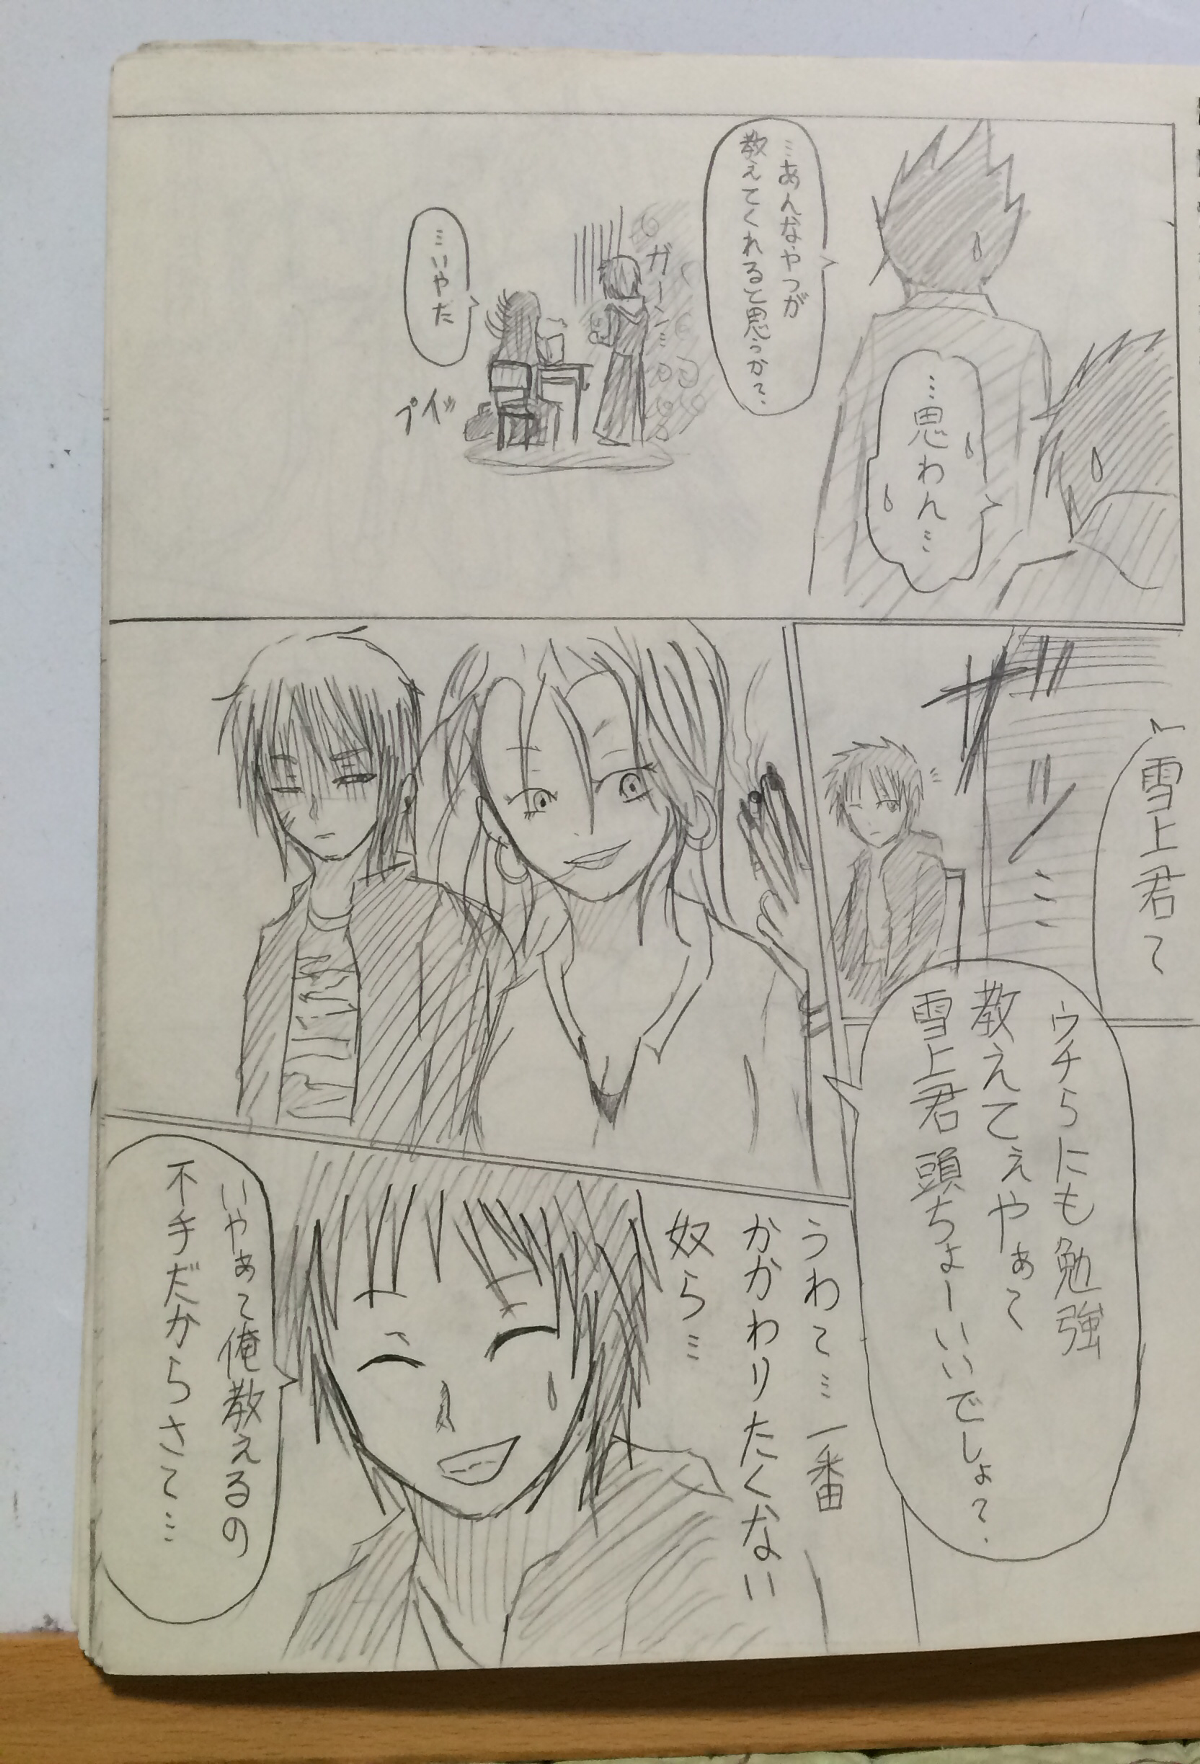 …あんなやつが
教えてくれると思うか？
…思わん…
ガーン…
…いやだ
プイッ
ザッ…
雪上君て
ウチらにも勉強
教えてぇやぁて
雪上君頭ちょーいいでしょ？
うわて…一番
かかわりたくない
奴ら…
いやぁて俺教えるの
不手だからさて…